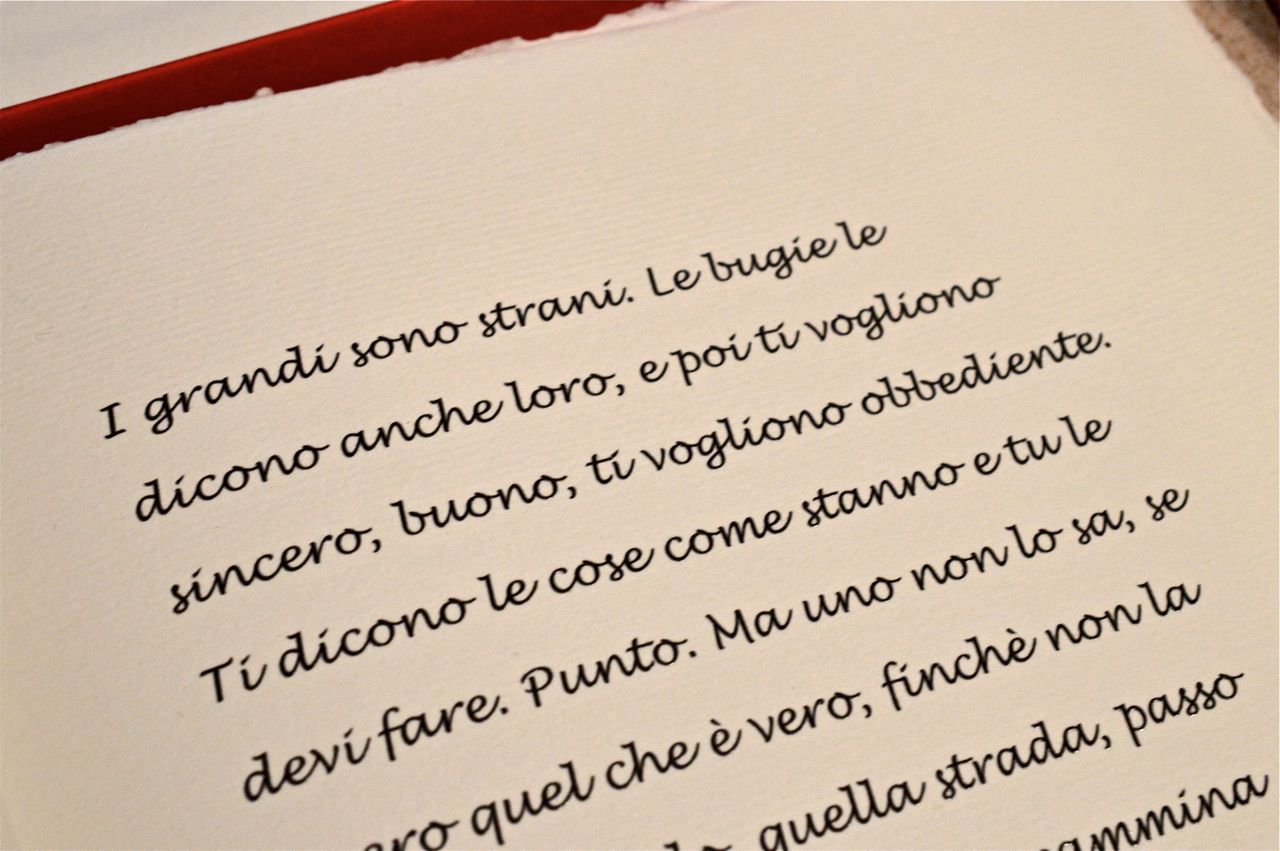 I grandi sono strani. Le bugie le
dicono anche loro, e poi ti vogliono
sincero, buono, ti vogliono obbediente.
Ti dicono le cose come stanno e tu le
devi fare. Punto. Ma uno non lo sa, se
quel che è vero, finchè non la
quella strada, passo